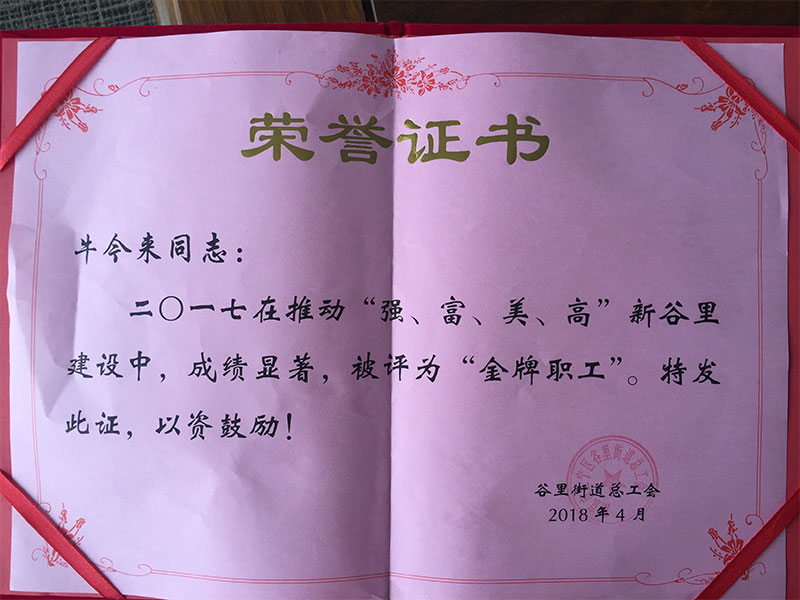 荣誉证书
牛今来同志：
二〇一七在推动“强、富、美、高”新谷里
建设中，成绩显著，被评为“金牌职工”。特发
此证，以资鼓励！
宁区谷里街道总工
谷里街道总工会
2018年4月